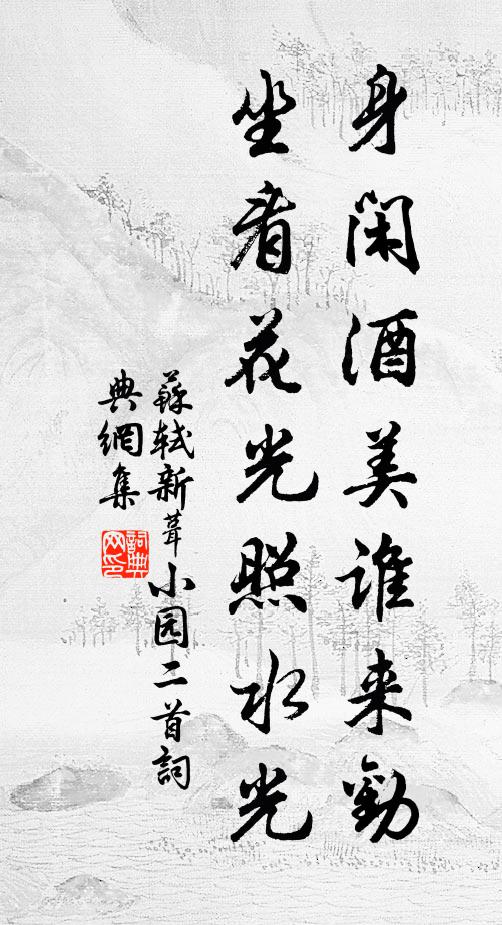 身閑酒美谁来勸
坐看花光照水光
蘇軾新葺小园二首詞
典網集
詞典网印